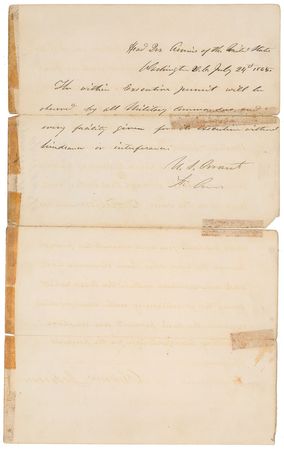 Head Qrs Armies of the United States
Washington D.C. July 24th 1865.
The within Executive permit will be
observed by all Military Commanders, and
every facility given for its execution without
hindrance or interference.
U. S. Grant
Lt. Gen.